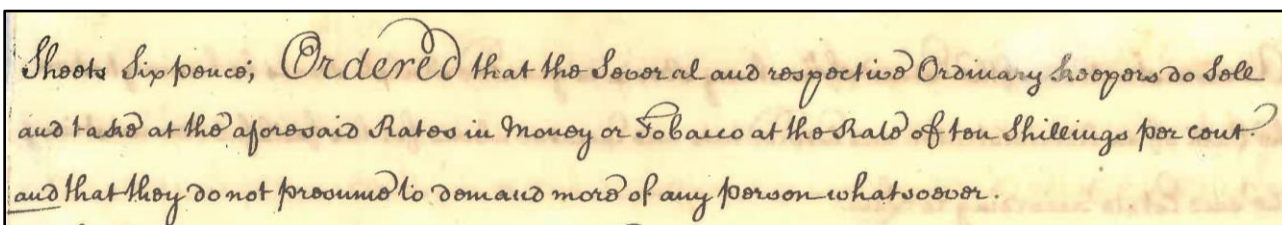 Sheets Sixpence; Ordered that the Several and respective Ordinary keepers do Sell
and take at the aforesaid Rates in Money or Tobacco at the Rate of ten Shillings per cent
and that they do not presume to demand more of any person whatsoever.